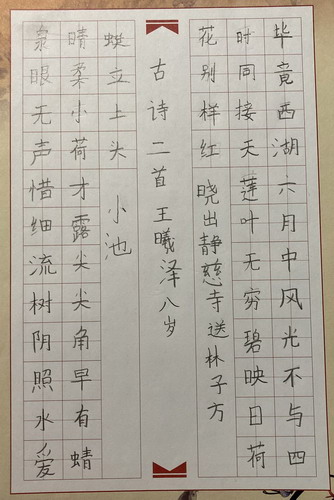 毕竟西湖六月中风光不与四
时同接天莲叶无穷碧映日荷
花别样红 晓出静慈寺送林子方
古诗二首 王曦泽八岁
泉眼无声惜细流树阴照水爱
晴柔小荷才露尖尖角早有蜻
蜓立上头 小池